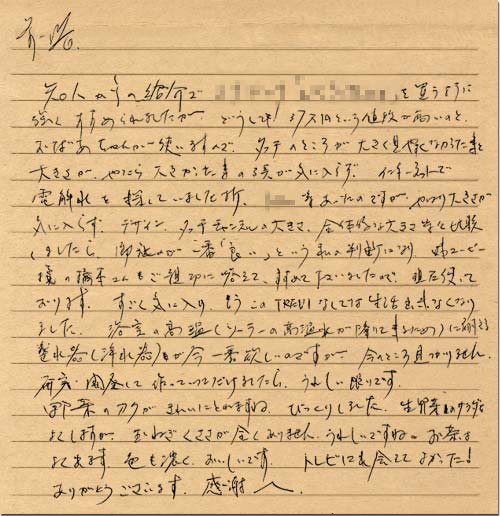 前略.
知人からの紹介で を買うように
強くすすめられましたが、どうしても という値段が高いのと、
おばあちゃんが使いますので、タッチのところが大きく見 事と
大きさが、やたら大きかった事の3点が気に入らず、インターネットで
電解水を探していました折、 等あったのですが、やはり大きさが
気に入らず、デザイン、タッチ の大きさ、全体的な大きさ等を比較
しましたら、御社のが一番「良い」という私の判断になり、
様の橋本さんもご親切に答えて、 下さいましたので、現在使って
おります。すごく気に入り、もうこのTREVIなしでは生活出来なくなり
ました。浴室の高温(ソーラーの高温水が降りて ため)に耐える
整水器(浄水器)が今一番欲しいのですが、今のところ見つかりません。
研究・開発して作っていただけましたら、うれしい限りです。
野菜のアクがきれいにとれますね。びっくりしました。生野菜のサラダを
よくしますが、玉ねぎくささが全くありません。うれしいですね。お茶も
よく出ます。色も濃く、おいしいです。トレビに出会えてよかった!
ありがとうございます。感謝